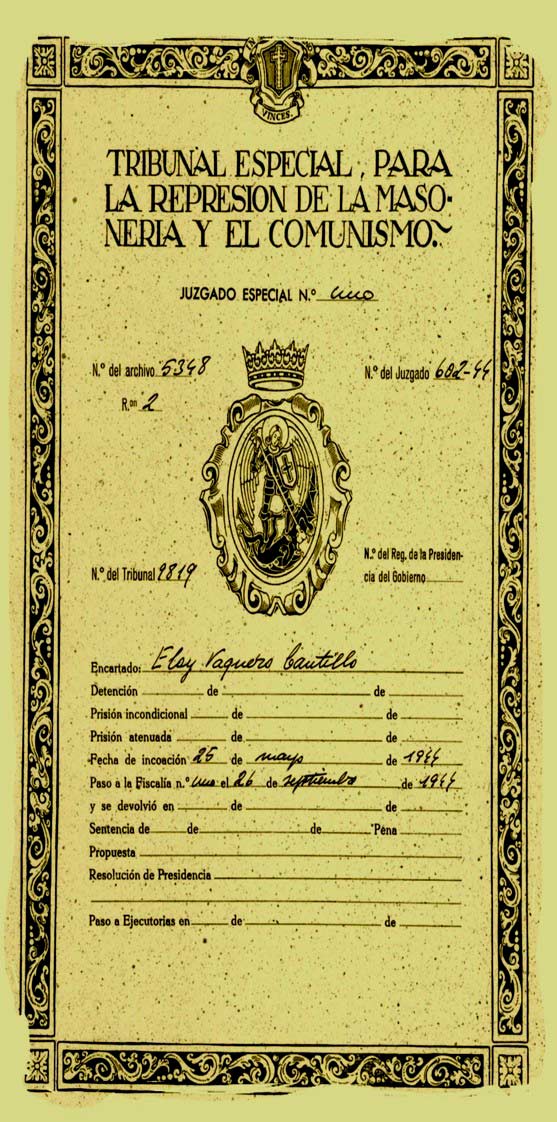 VINCES.
TRIBUNAL ESPECIAL, PARA
LA REPRESION DE LA MASO-
NERIA Y EL COMUNISMO.~
JUZGADO ESPECIAL N.º uno
N.º del archivo 5348
N.º del Juzgado 682-44
R.on 2
N.º del Tribunal 9819
N.º del Reg. de la Presiden-
cia del Gobierno
Encartado: Eloy Vaquero Cantillo
Detención de de
Prisión incondicional de de
Prisión atenuada de de
Fecha de incoación 25 de mayo de 1944
Paso a la Fiscalía n.º uno el 26 de septiembre de 1944
y se devolvió en de de
Sentencia de de de Pena
Propuesta
Resolución de Presidencia
Paso a Ejecutorias en de de